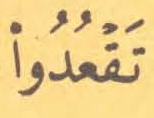 تَقْعُدُواْ